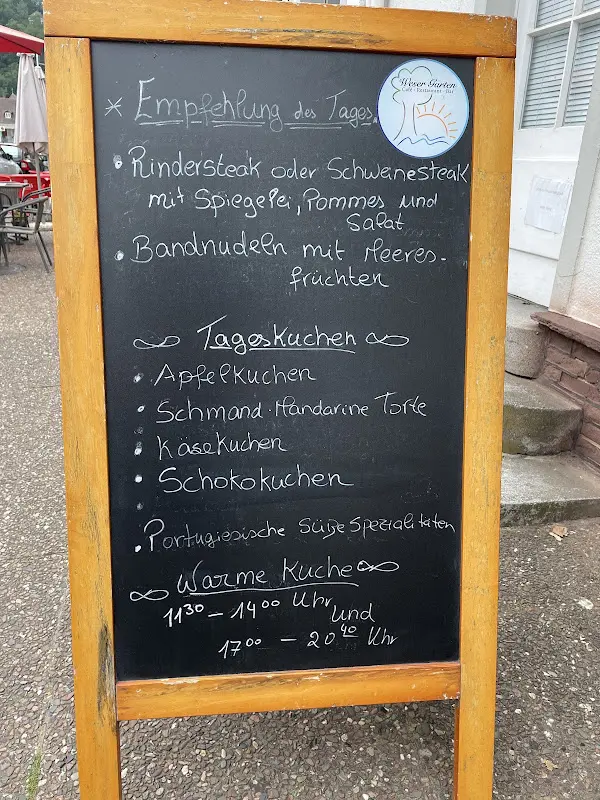 Weser Garten
Café · Restaurant · Bar
* Empfehlung des Tages
• Rindersteak oder Schweinesteak
mit Spiegelei, Pommes und
Salat
• Bandnudeln mit Meeres-
früchten
Tageskuchen
• Apfelkuchen
• Schmand-Mandarine Torte
• Käsekuchen
• Schokokuchen
•
• Portugiesische Süße Spezialitäten
Warme Küche
11³⁰ - 14⁰⁰ Uhr
und
17⁰⁰ - 20⁴⁰ Uhr